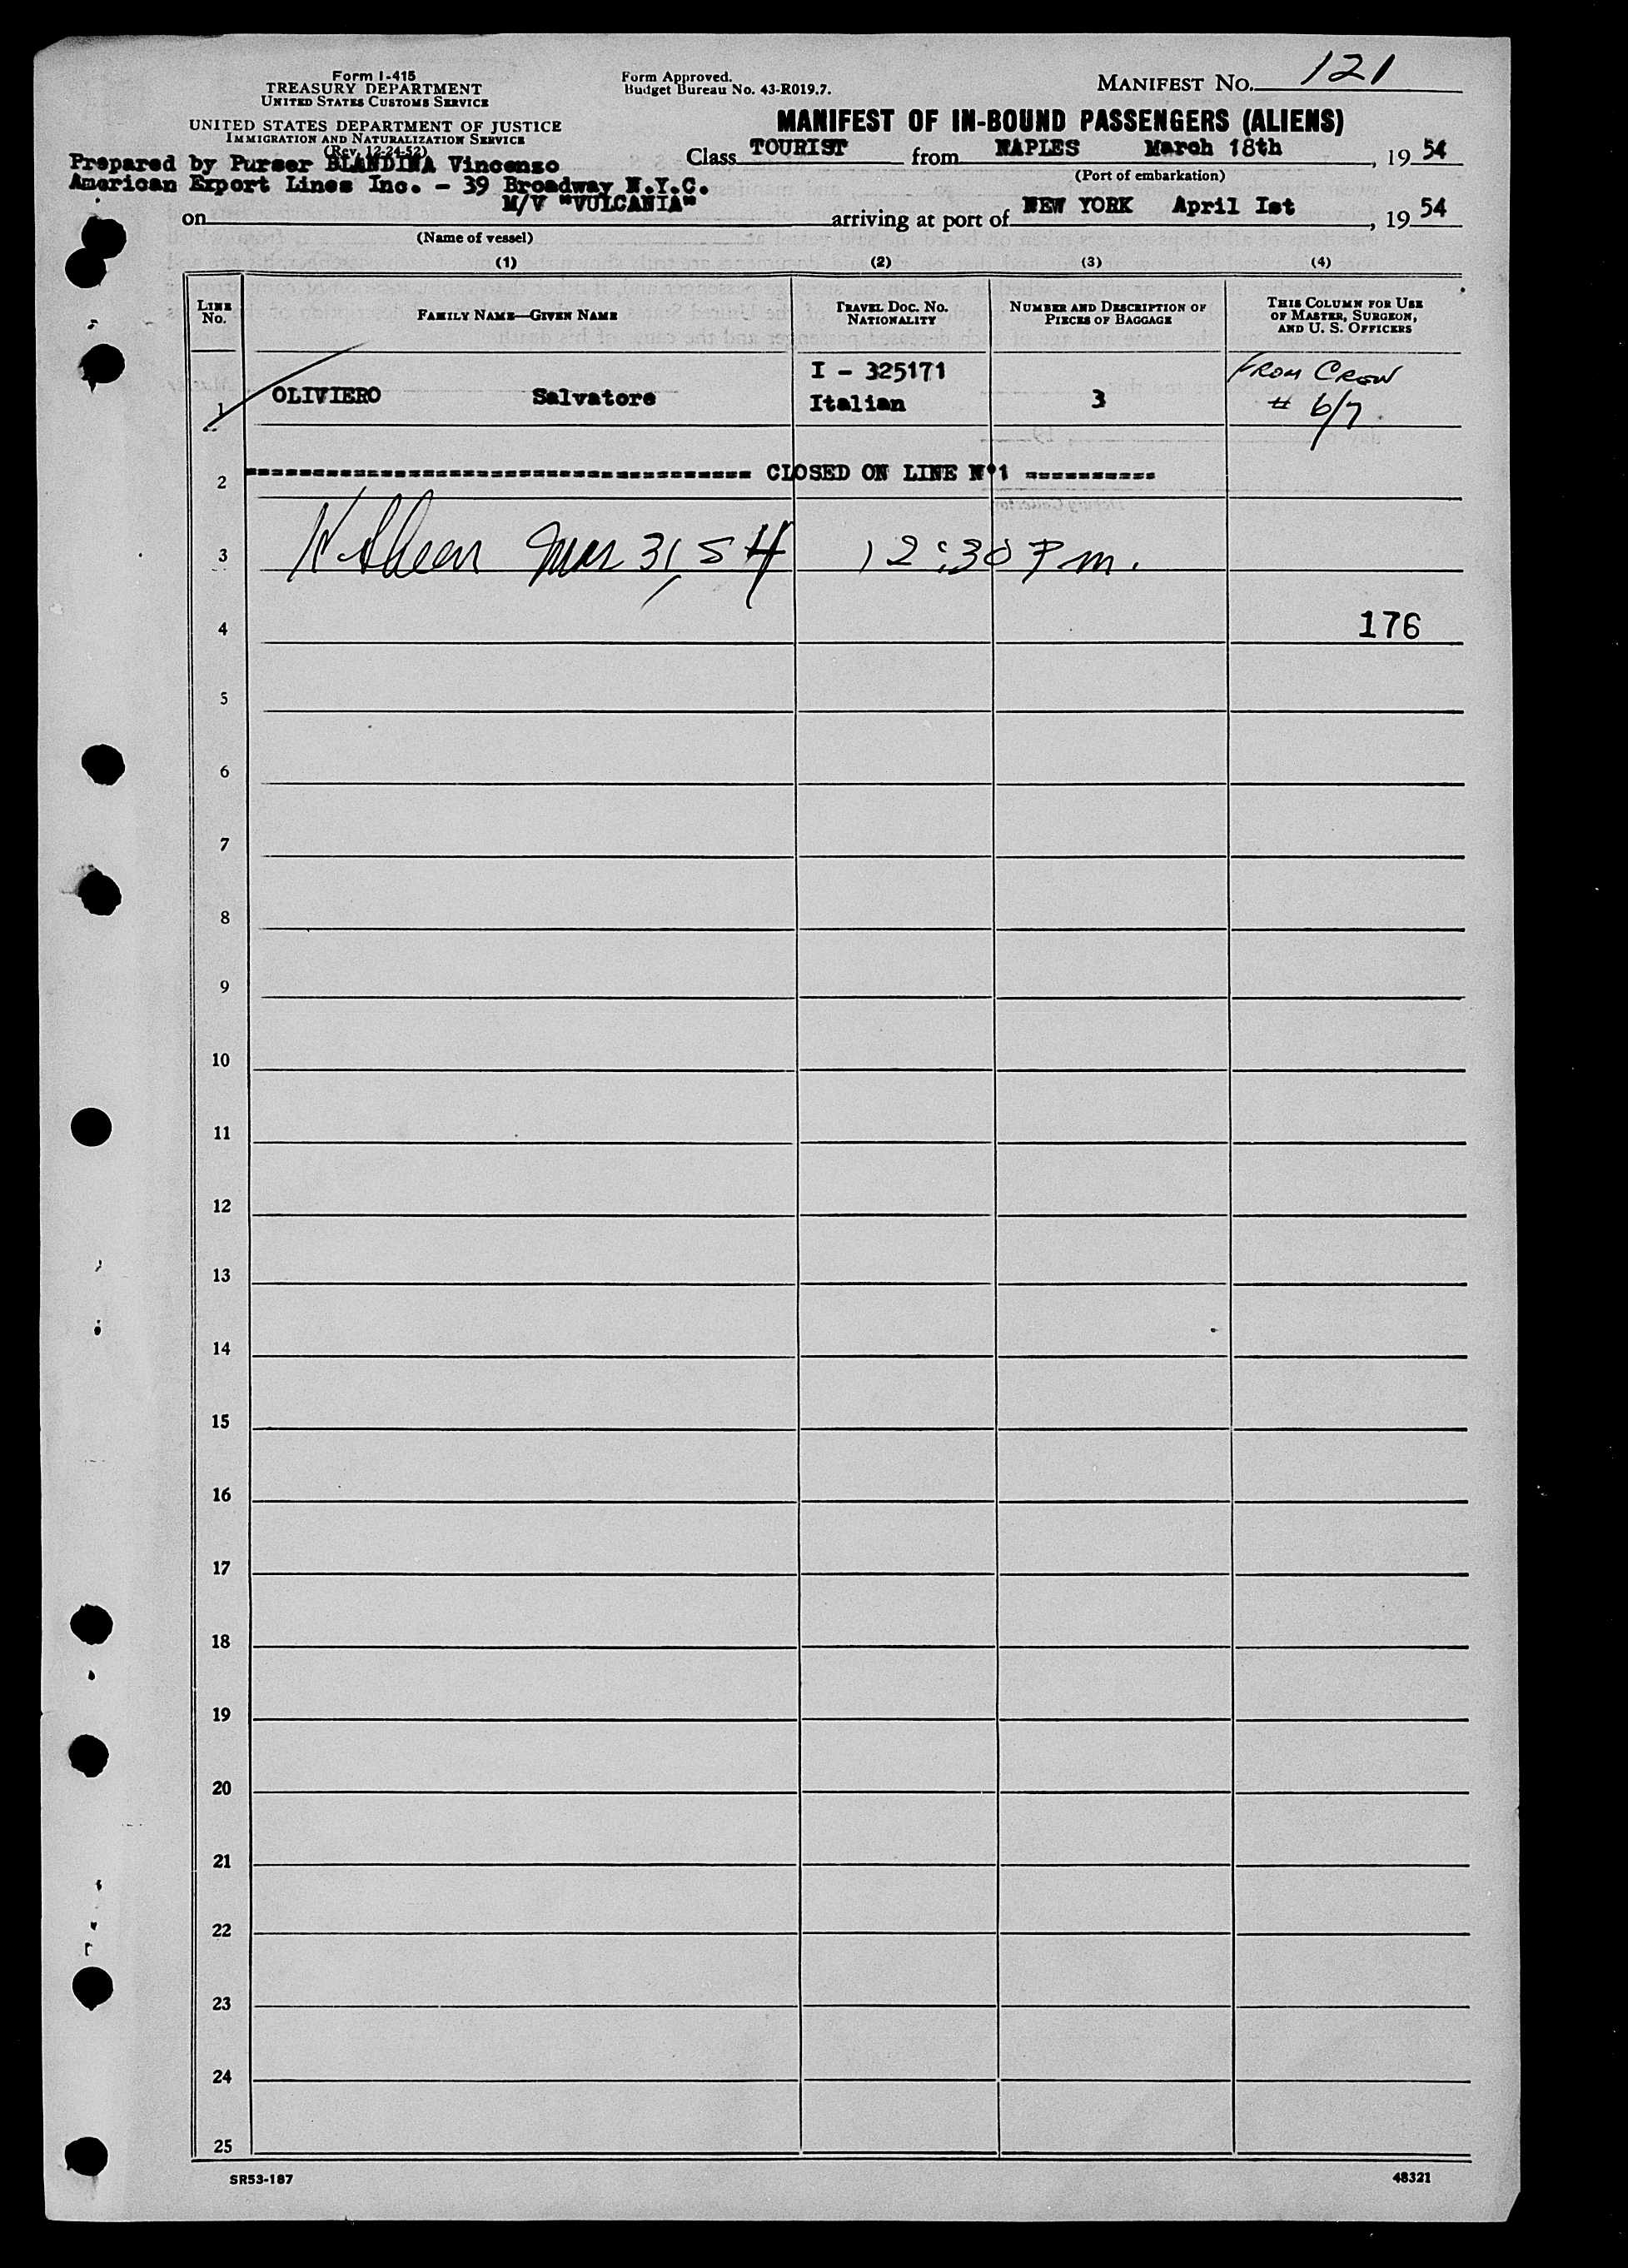 Form I-415
TREASURY DEPARTMENT
UNITED STATES CUSTOMS SERVICE
UNITED STATES DEPARTMENT OF JUSTICE
IMMIGRATION AND NATURALIZATION SERVICE
(Rev. 12-24-52)
Form Approved.
Budget Bureau No. 43-R019.7.
MANIFEST NO. 121
MANIFEST OF IN-BOUND PASSENGERS (ALIENS)
Prepared by Purser BLANDINA Vincenzo
American Export Lines Inc. - 39 Broadway N.Y.C.
Class TOURIST from NAPLES March 18th, 19 54
(Port of embarkation)
on M/V "VULCANIA" arriving at port of NEW YORK April Ist, 19 54
(Name of vessel)
(1) (2) (3) (4)
LINE No. FAMILY NAME—GIVEN NAME TRAVEL DOC. NO. NATIONALITY NUMBER AND DESCRIPTION OF PIECES OF BAGGAGE THIS COLUMN FOR USE OF MASTER, SURGEON, AND U. S. OFFICERS
1 OLIVIERO Salvatore I - 325171 Italian 3 FROM CREW # 6/7
2 CLOSED ON LINE N°1
3 Mar 31, 54 12:30 P.m.
4 176
5
6
7
8
9
10
11
12
13
14
15
16
17
18
19
20
21
22
23
24
25
SR53-187 48321